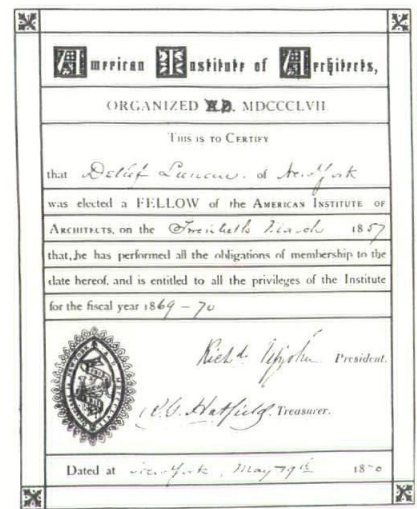 American Institute of Architects,
ORGANIZED A.D. MDCCCLVII
THIS IS TO CERTIFY
that Detlef Lienau of New York
was elected a FELLOW of the AMERICAN INSTITUTE OF
ARCHITECTS, on the Twentieth March 1857
that, he has performed all the obligations of membership to the
date hereof, and is entitled to all the privileges of the Institute
for the fiscal year 1869 - 70
Richd. Upjohn President.
R.G. Hatfield, Treasurer.
Dated at New York, May 19th 1870